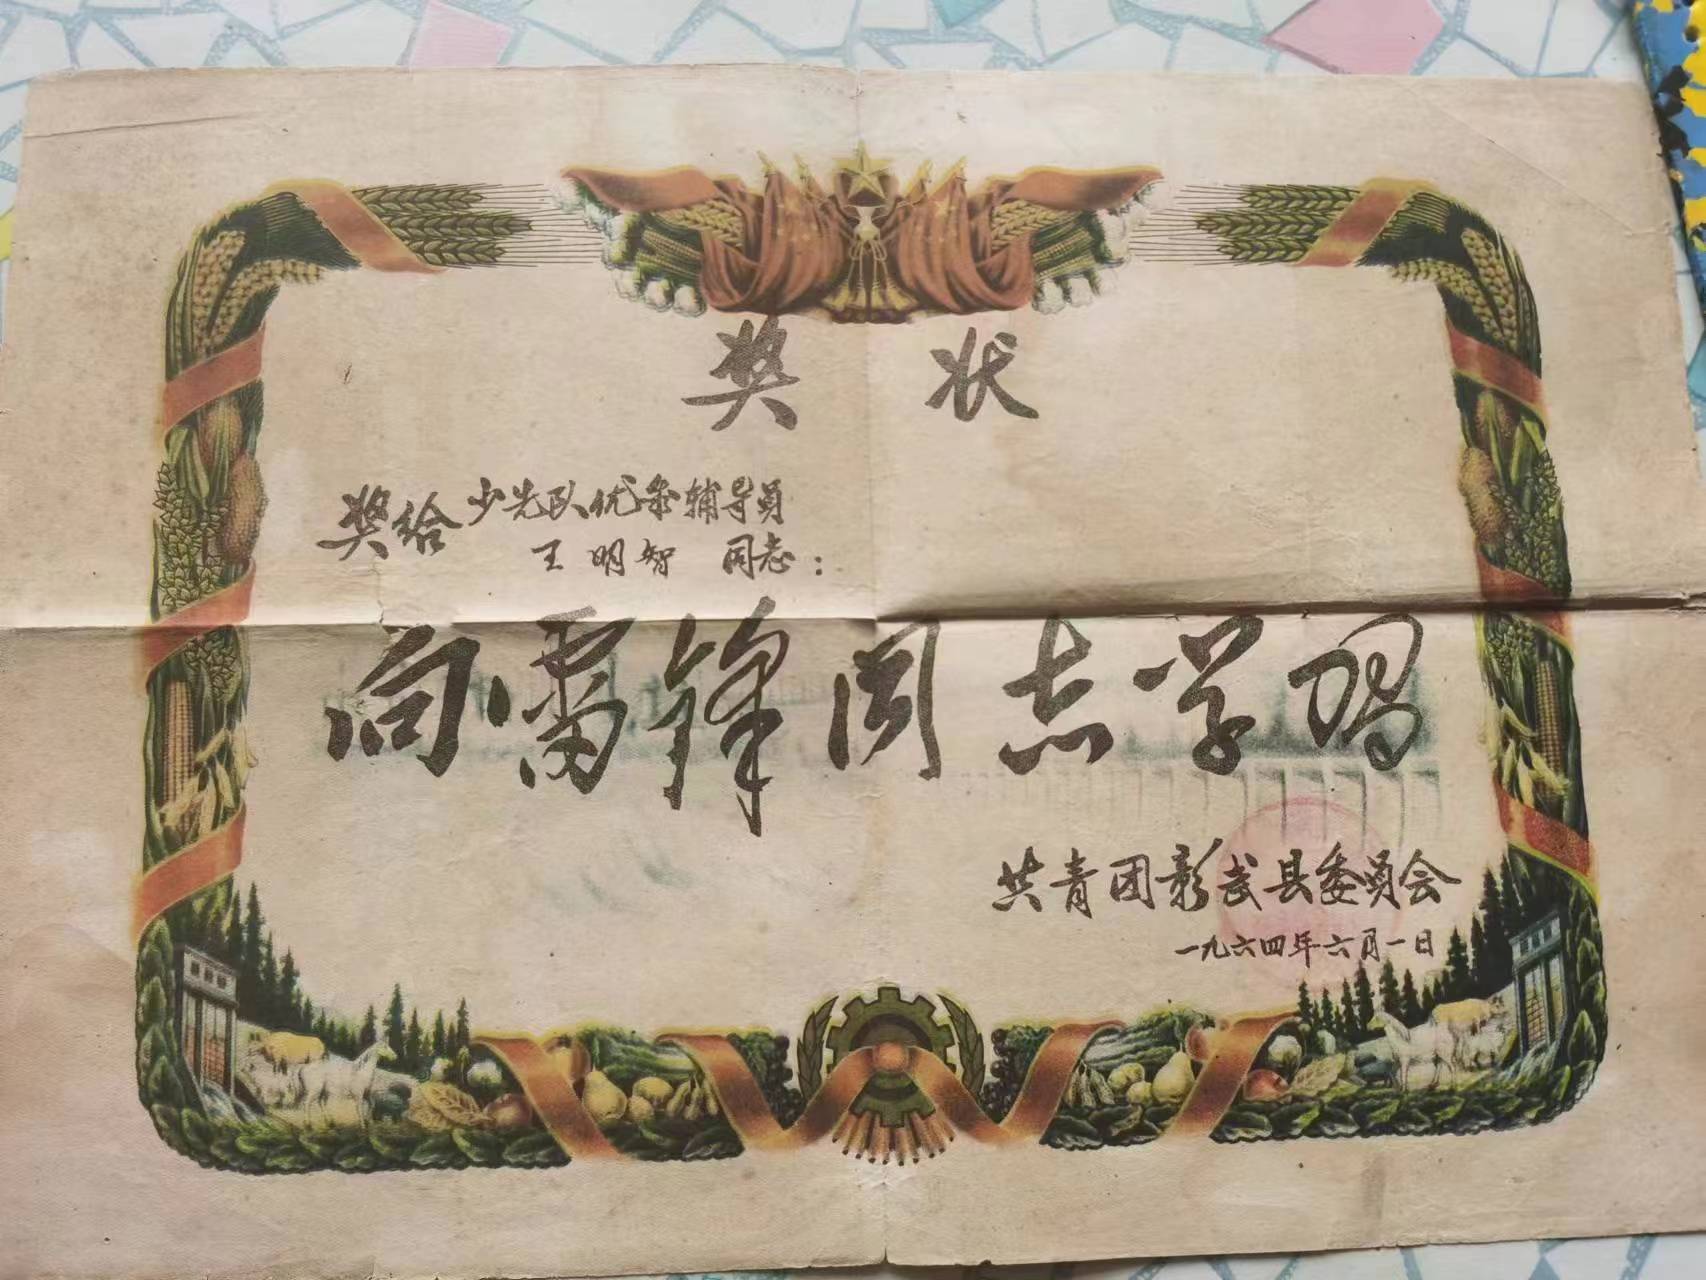 奖状
奖给 少先队优秀辅导员
王明智 同志：
向雷锋同志学习
共青团彰武县委员会
一九六四年六月一日